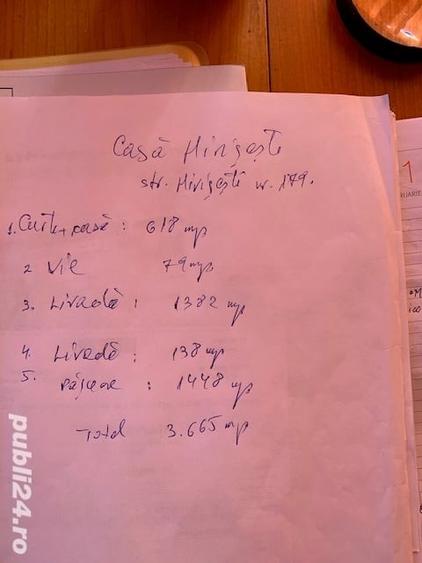 Casă Hirișești
str. Hirișești nr. 179.
1. Curte+casă : 618 mp
2 Vie 79 mp
3. Livadă : 1382 mp
4. Livadă : 138 mp
5. Pășune : 1448 mp
Total 3.665 mp
publi24.ro